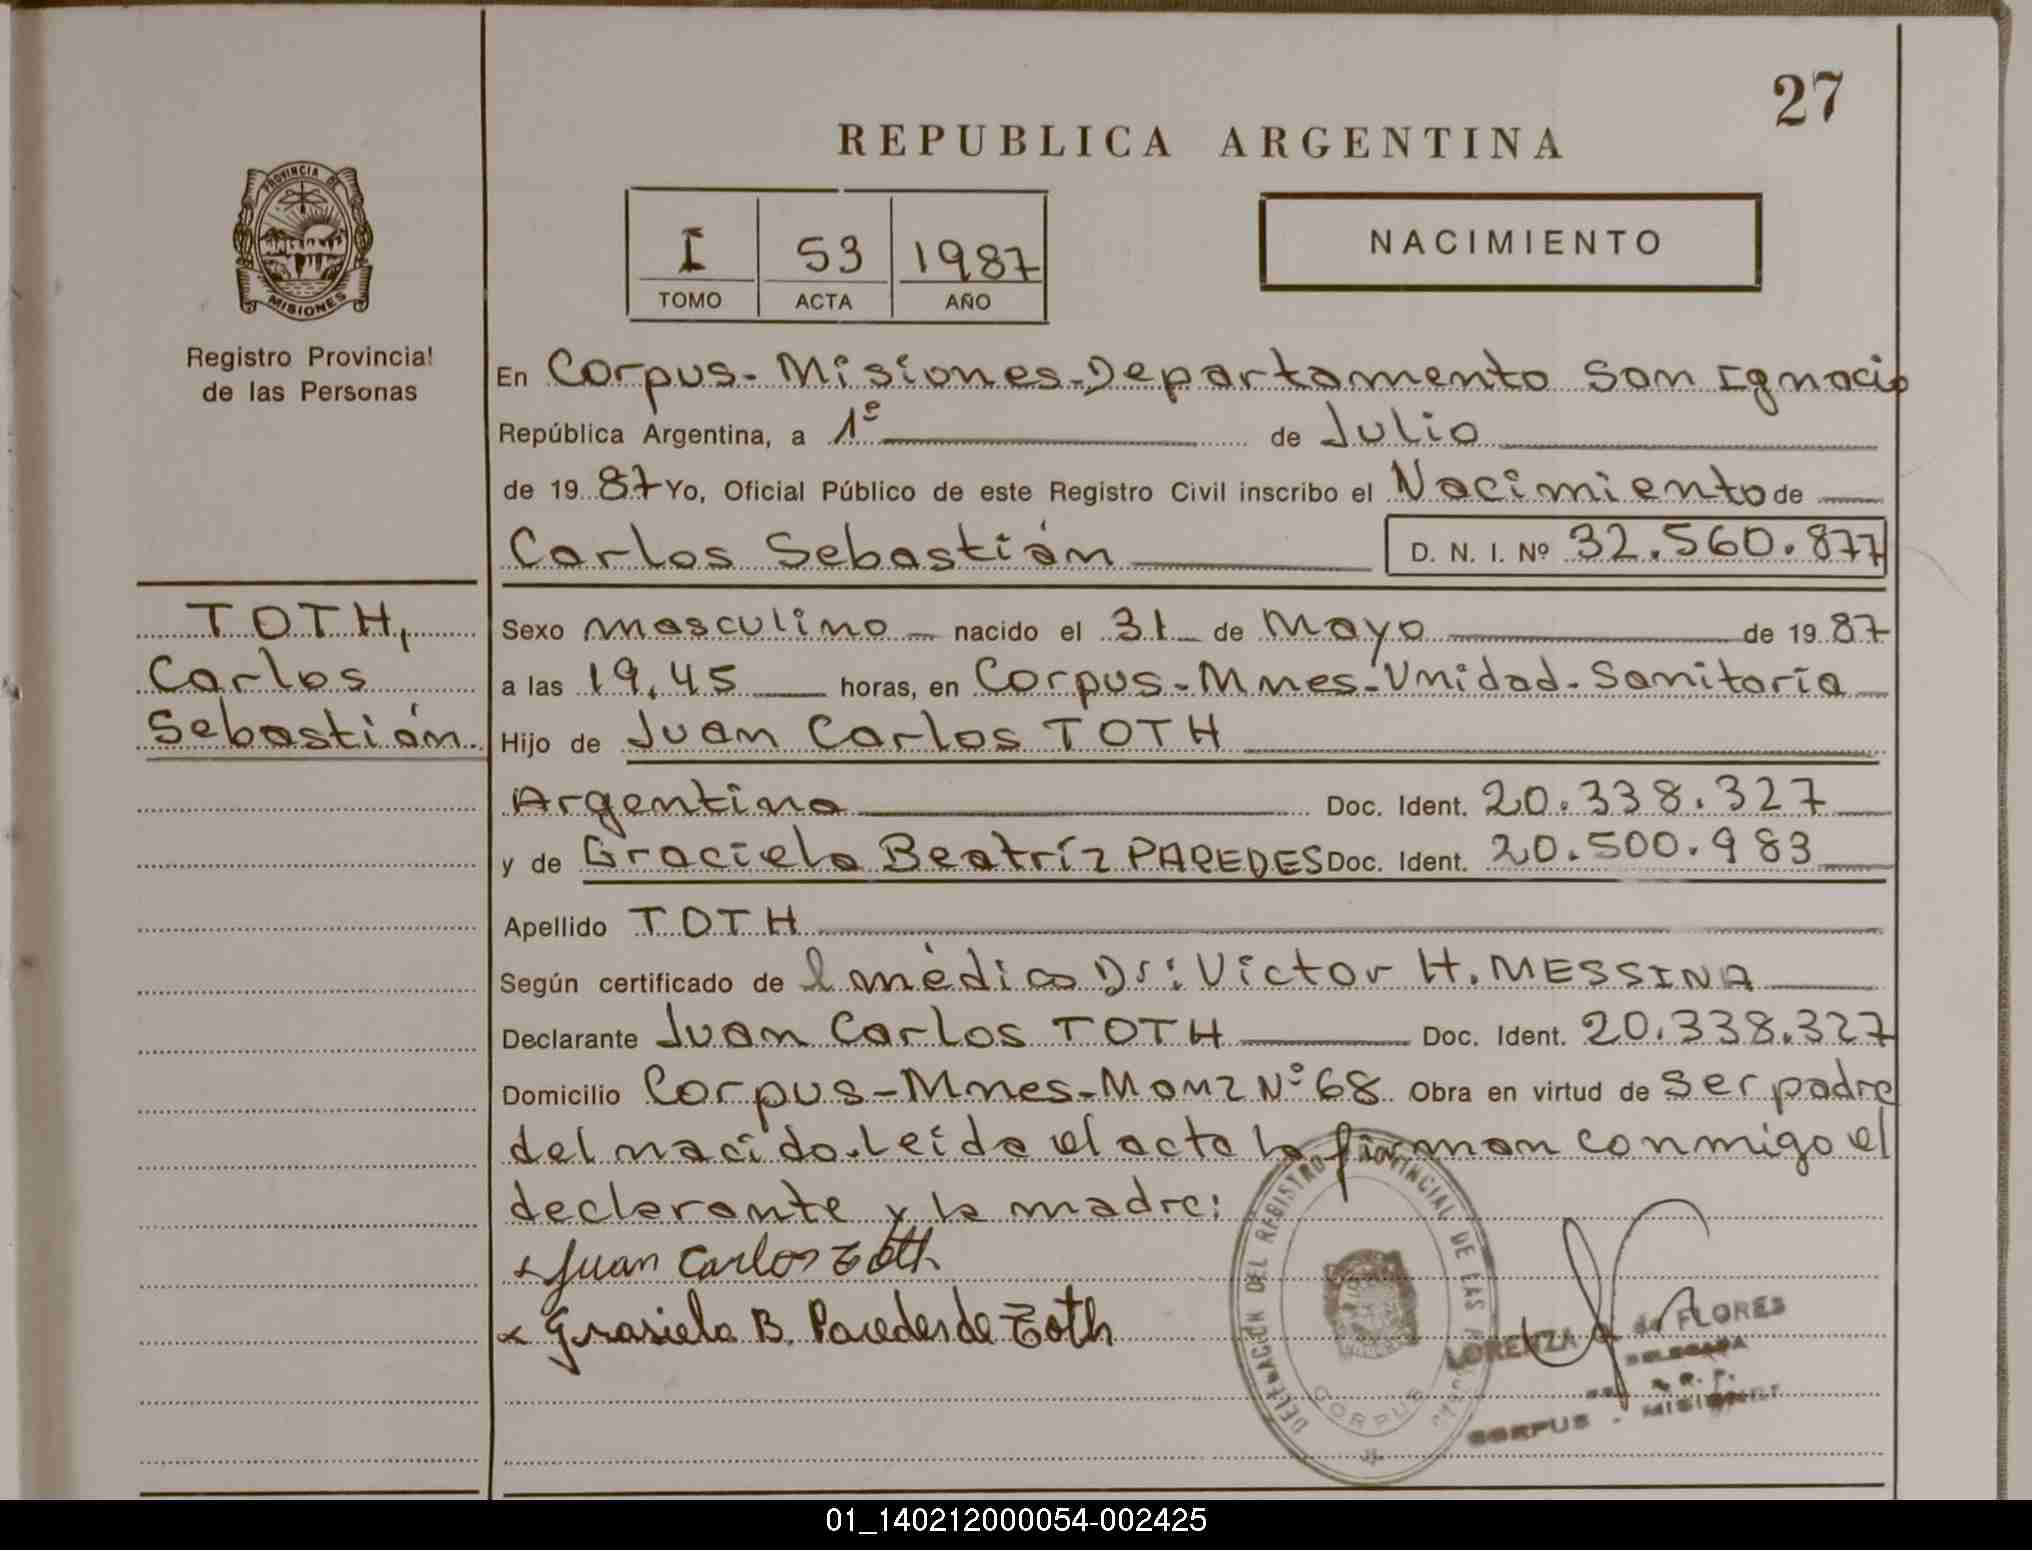 27
REPUBLICA ARGENTINA
PROVINCIA DE
MISIONES
Registro Provincial
de las Personas
I 53 1987
TOMO ACTA AÑO
NACIMIENTO
En Corpus-Misiones-Departamento San Ignacio
República Argentina, a 1º de Julio
de 1987 Yo, Oficial Público de este Registro Civil inscribo el Nacimiento de
Carlos Sebastián D. N. I. Nº 32.560.877
TOTH,
Carlos
Sebastián.
Sexo masculino nacido el 31 de Mayo de 1987
a las 19,45 horas, en Corpus-Mnes-Unidad-Sanitaria
Hijo de Juan Carlos TOTH
Argentina Doc. Ident. 20.338.327
y de Graciela Beatríz PAREDES Doc. Ident. 20.500.983
Apellido TOTH
Según certificado de l médico Dr: Victor H. MESSINA
Declarante Juan Carlos TOTH Doc. Ident. 20.338.327
Domicilio Corpus-Mnes-Manz Nº 68 Obra en virtud de ser padre
del nacido. Leida el acta la firman conmigo el
declarante y la madre:
Juan Carlos Toth
Grasiela B. Paredes de Toth
DEL REGISTRO PROVINCIAL DE LAS
CORPUS
LORENZA de FLORES
DELEGADA
R. P.
CORPUS - MISIONES
01_140212000054-002425